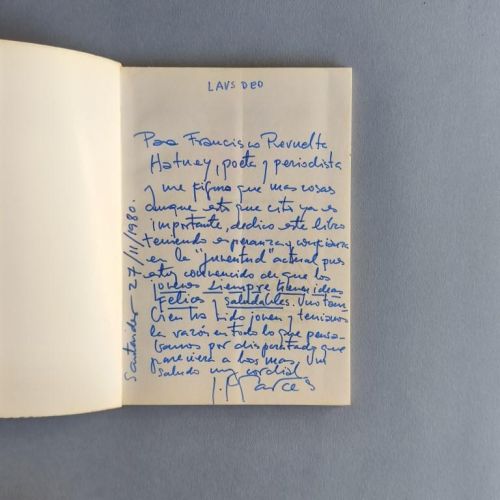 LAUS DEO
Para Francisco Revuelta
Hatuey, poeta y periodista
y me figuro que mas cosas
aunque esta que cito ya es
importante, dedico este libro
teniendo esperanza y confianza
en la "juventud" actual pues
estoy convencido de que los
jovenes siempre tienen ideas
felices y saludables. Uno tam-
bien ha sido joven y teniamos
la razón en todo lo que pensa-
bamos por disparatado que
pareciera a los mas. Un
saludo muy cordial
Santander 27/11/1980.